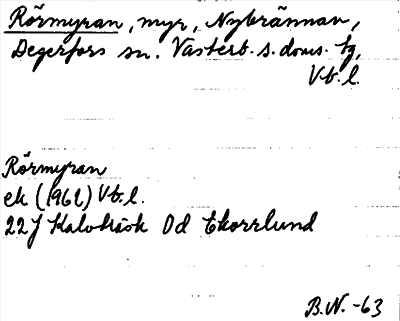 Rörmyran, myr, Nybrännan,
Degerfors sn. Västerb. s. doms. tg,
Vb. l.
Rörmyran
ek (1961) Vb. l.
22J Kalvträsk 0d Ekorrlund
B.N. -63